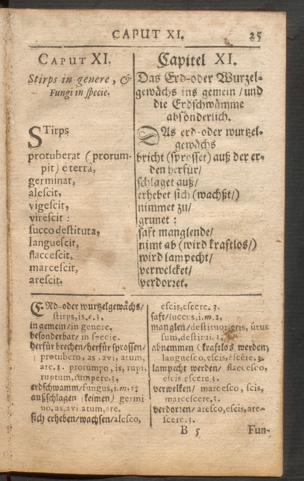 CAPUT XI. 25
CAPUT XI.
Stirps in genere, &
Fungi in specie.
STirps
protuberat (prorum-
pit) è terra,
germinat,
alescit,
vigescit,
virescit:
succo destituta,
languescit,
flaccescit,
marcescit,
arescit.
Capitel XI.
Das Erd-oder Wurzel-
gewächs ins gemein / und
die Erdschwämme
absonderlich.
DAs erd-oder wurtzel-
gewächs
bricht (sprosset) auß der er-
den herfür /
schlaget auß /
erhebet sich (wachßt) /
nimmet zu /
grunet:
saft manglende /
nimt ab (wird kraftlos /)
wird lampecht /
verwelcket /
verdorret.
ERd-oder wurtzelgewächs /
stirps, is, c. 3.
in gemein / in genere,
besonderbar / in specie.
herfür brechen / herfür sprossen /
protubero, as, avi, atum,
are. 1. prorumpo, is, rupi,
ruptum, rumpere. 3.
erdschwamm / fungus, i. m. 2.
außschlagen (keimen) germi
no, as, avi, atum, are.
sich erheben / wachsen / alesco,
escis, escere. 3.
saft / succus, i. m. 2.
manglen / destituo,
sum, destitui.
abnemmen (kraftlos werden)
languesco, escis, escere. 3.
lampecht werden / flaccesco,
escis, escere. 3.
verwelken / marcesco, scis,
marcescere. 3.
verdorren / aresco, escis, are-
scere. 3.
B 5 Fun-